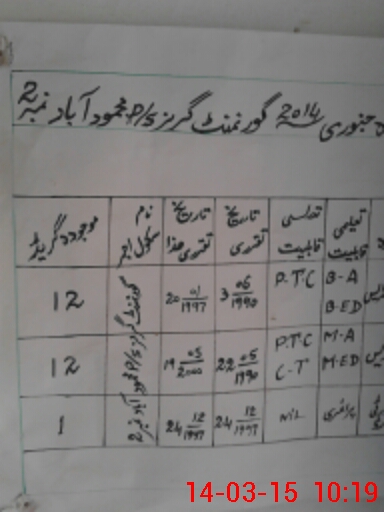 جنوری 2014 گورنمنٹ گرلز P/S محمود آباد نمبر 2
تعلیمی قابلیت تدریسی قابلیت تاریخ تقرری تاریخ تقرری ھذا نام سکول اجر موجودہ گریڈ
B-A B-ED P.T.C 3 06/1990 20 01/1997 گورنمنٹ گرلز P/S محمود آباد نمبر 2 12
M-A M-ED P.T.C C-T 22 05/1990 19 05/2000 12
پرائمری NIL 24 12/1997 24 12/1997 1
14-03-15 10:19